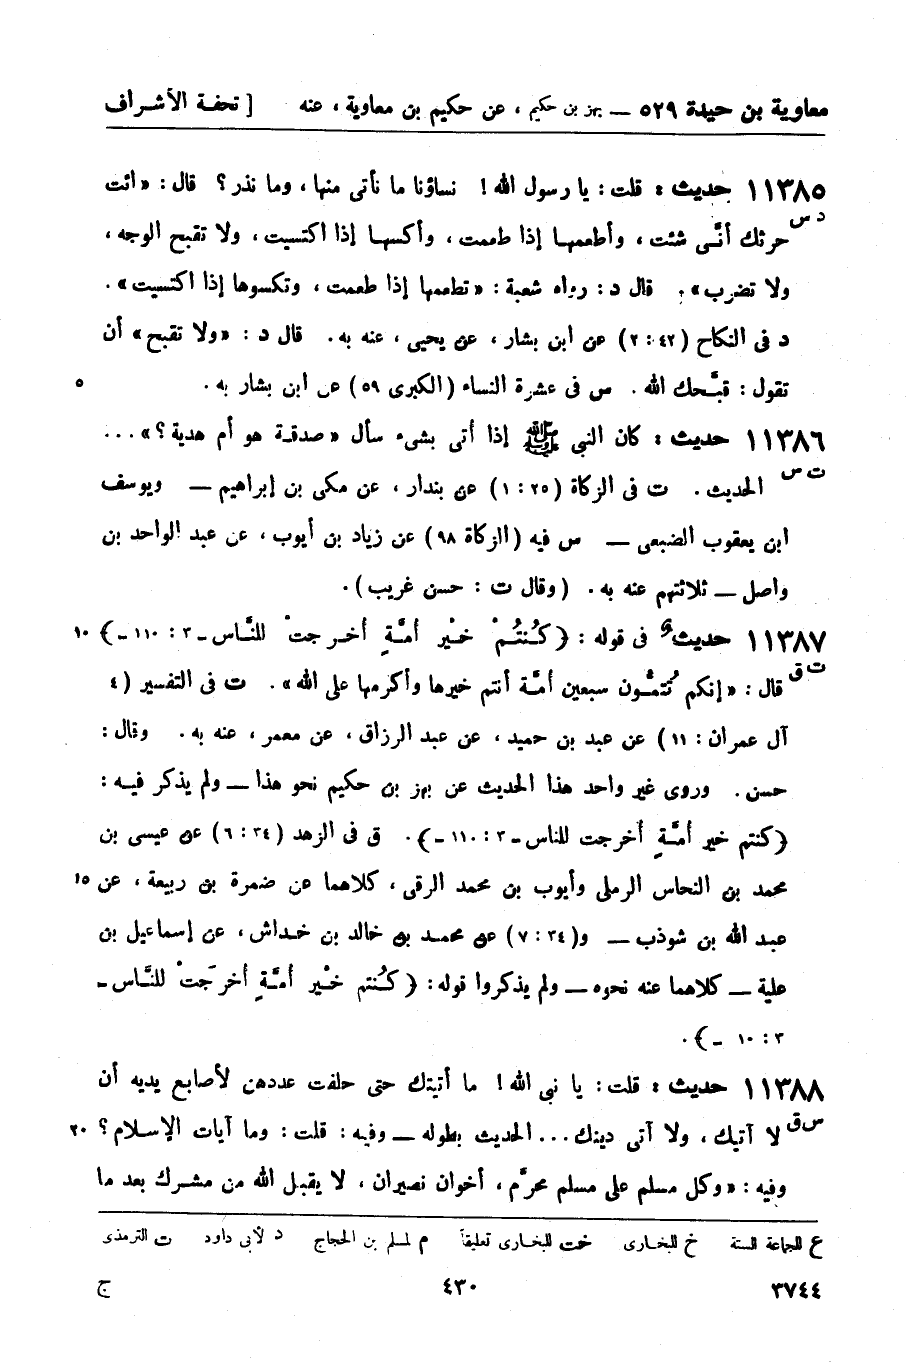 معاوية بن حيدة ٥٢٩ — بهز بن حكيم ، عن حكيم بن معاوية ، عنه [ تحفة الأشراف
١١٣٨٥ حديث : قلت : يا رسول الله ! نساؤنا ما نأتى منها ، وما نذر ؟ قال : «ائت
د س
حرثك أنَّى شئت ، وأطعمها إذا طعمت ، وأكسها إذا اكتسيت ، ولا تقبح الوجه ،
ولا تضرب» . قال د : رواه شعبة : «تطعمها إذا طعمت ، وتكسوها إذا اكتسيت» .
د فى النكاح (٤٢ : ٢) عن ابن بشار ، عن يحيى ، عنه به . قال د : «ولا تقبح» أن
تقول : قبَّحك الله . س فى عشرة النساء (الكبرى ٥٩) عن ابن بشار به . ٥
١١٣٨٦ حديث : كان النبى ﷺ إذا أتى بشىء سأل «صدقة هو أم هدية ؟» ...
ت س
الحديث . ت فى الزكاة (٢٥ : ١) عن بندار ، عن مكى بن إبراهيم — ويوسف
ابن يعقوب الضبعى — س فيه (الزكاة ٩٨) عن زياد بن أيوب ، عن عبد الواحد بن
واصل — ثلاثتهم عنه به . (وقال ت : حسن غريب) .
١١٣٨٧ حديث فى قوله : ﴿كُنْتُمْ خَيْر أمَّةٍ أخرجتْ للنَّاس - ٣ : ١١٠ -﴾ ١٠
ت ق
قال : «إنكم تُتمُّون سبعين أمَّة أنتم خيرها وأكرمها على الله» . ت فى التفسير (٤
آل عمران : ١١) عن عبد بن حميد ، عن عبد الرزاق ، عن معمر ، عنه به . وقال :
حسن . وروى غير واحد هذا الحديث عن بهز بن حكيم نحو هذا — ولم يذكر فيه :
﴿كنتم خير أمَّةٍ أخرجت للناس - ٣ : ١١٠ -﴾ . ق فى الزهد (٣٤ : ٦) عن عيسى بن
محمد بن النحاس الرملى وأيوب بن محمد الرقى ، كلاهما عن ضمرة بن ربيعة ، عن ١٥
عبد الله بن شوذب — و(٣٤ : ٧) عن محمد بن خالد بن خداش ، عن إسماعيل بن
علية — كلاهما عنه نحوه — ولم يذكروا قوله : ﴿كُنتم خَيْر أمَّةٍ أخرَجتْ للنَّاس -
٣ : ١٠ -﴾ .
١١٣٨٨ حديث : قلت : يا نبى الله ! ما أتيتك حتى حلفت عددهن لأصابع يديه أن
س ق
لا آتيك ، ولا آتى دينك ... الحديث بطوله — وفيه : قلت : وما آيات الإسلام ؟ ٢٠
وفيه : «وكل مسلم على مسلم محرَّم ، أخوان نصيران ، لا يقبل الله من مشرك بعد ما
ع للجماعة الستة خ للبخارى خت للبخارى تعليقاً م لمسلم بن الحجاج د لأبى داود ت الترمذى
٣٧٤٤ ٤٣٠ ج